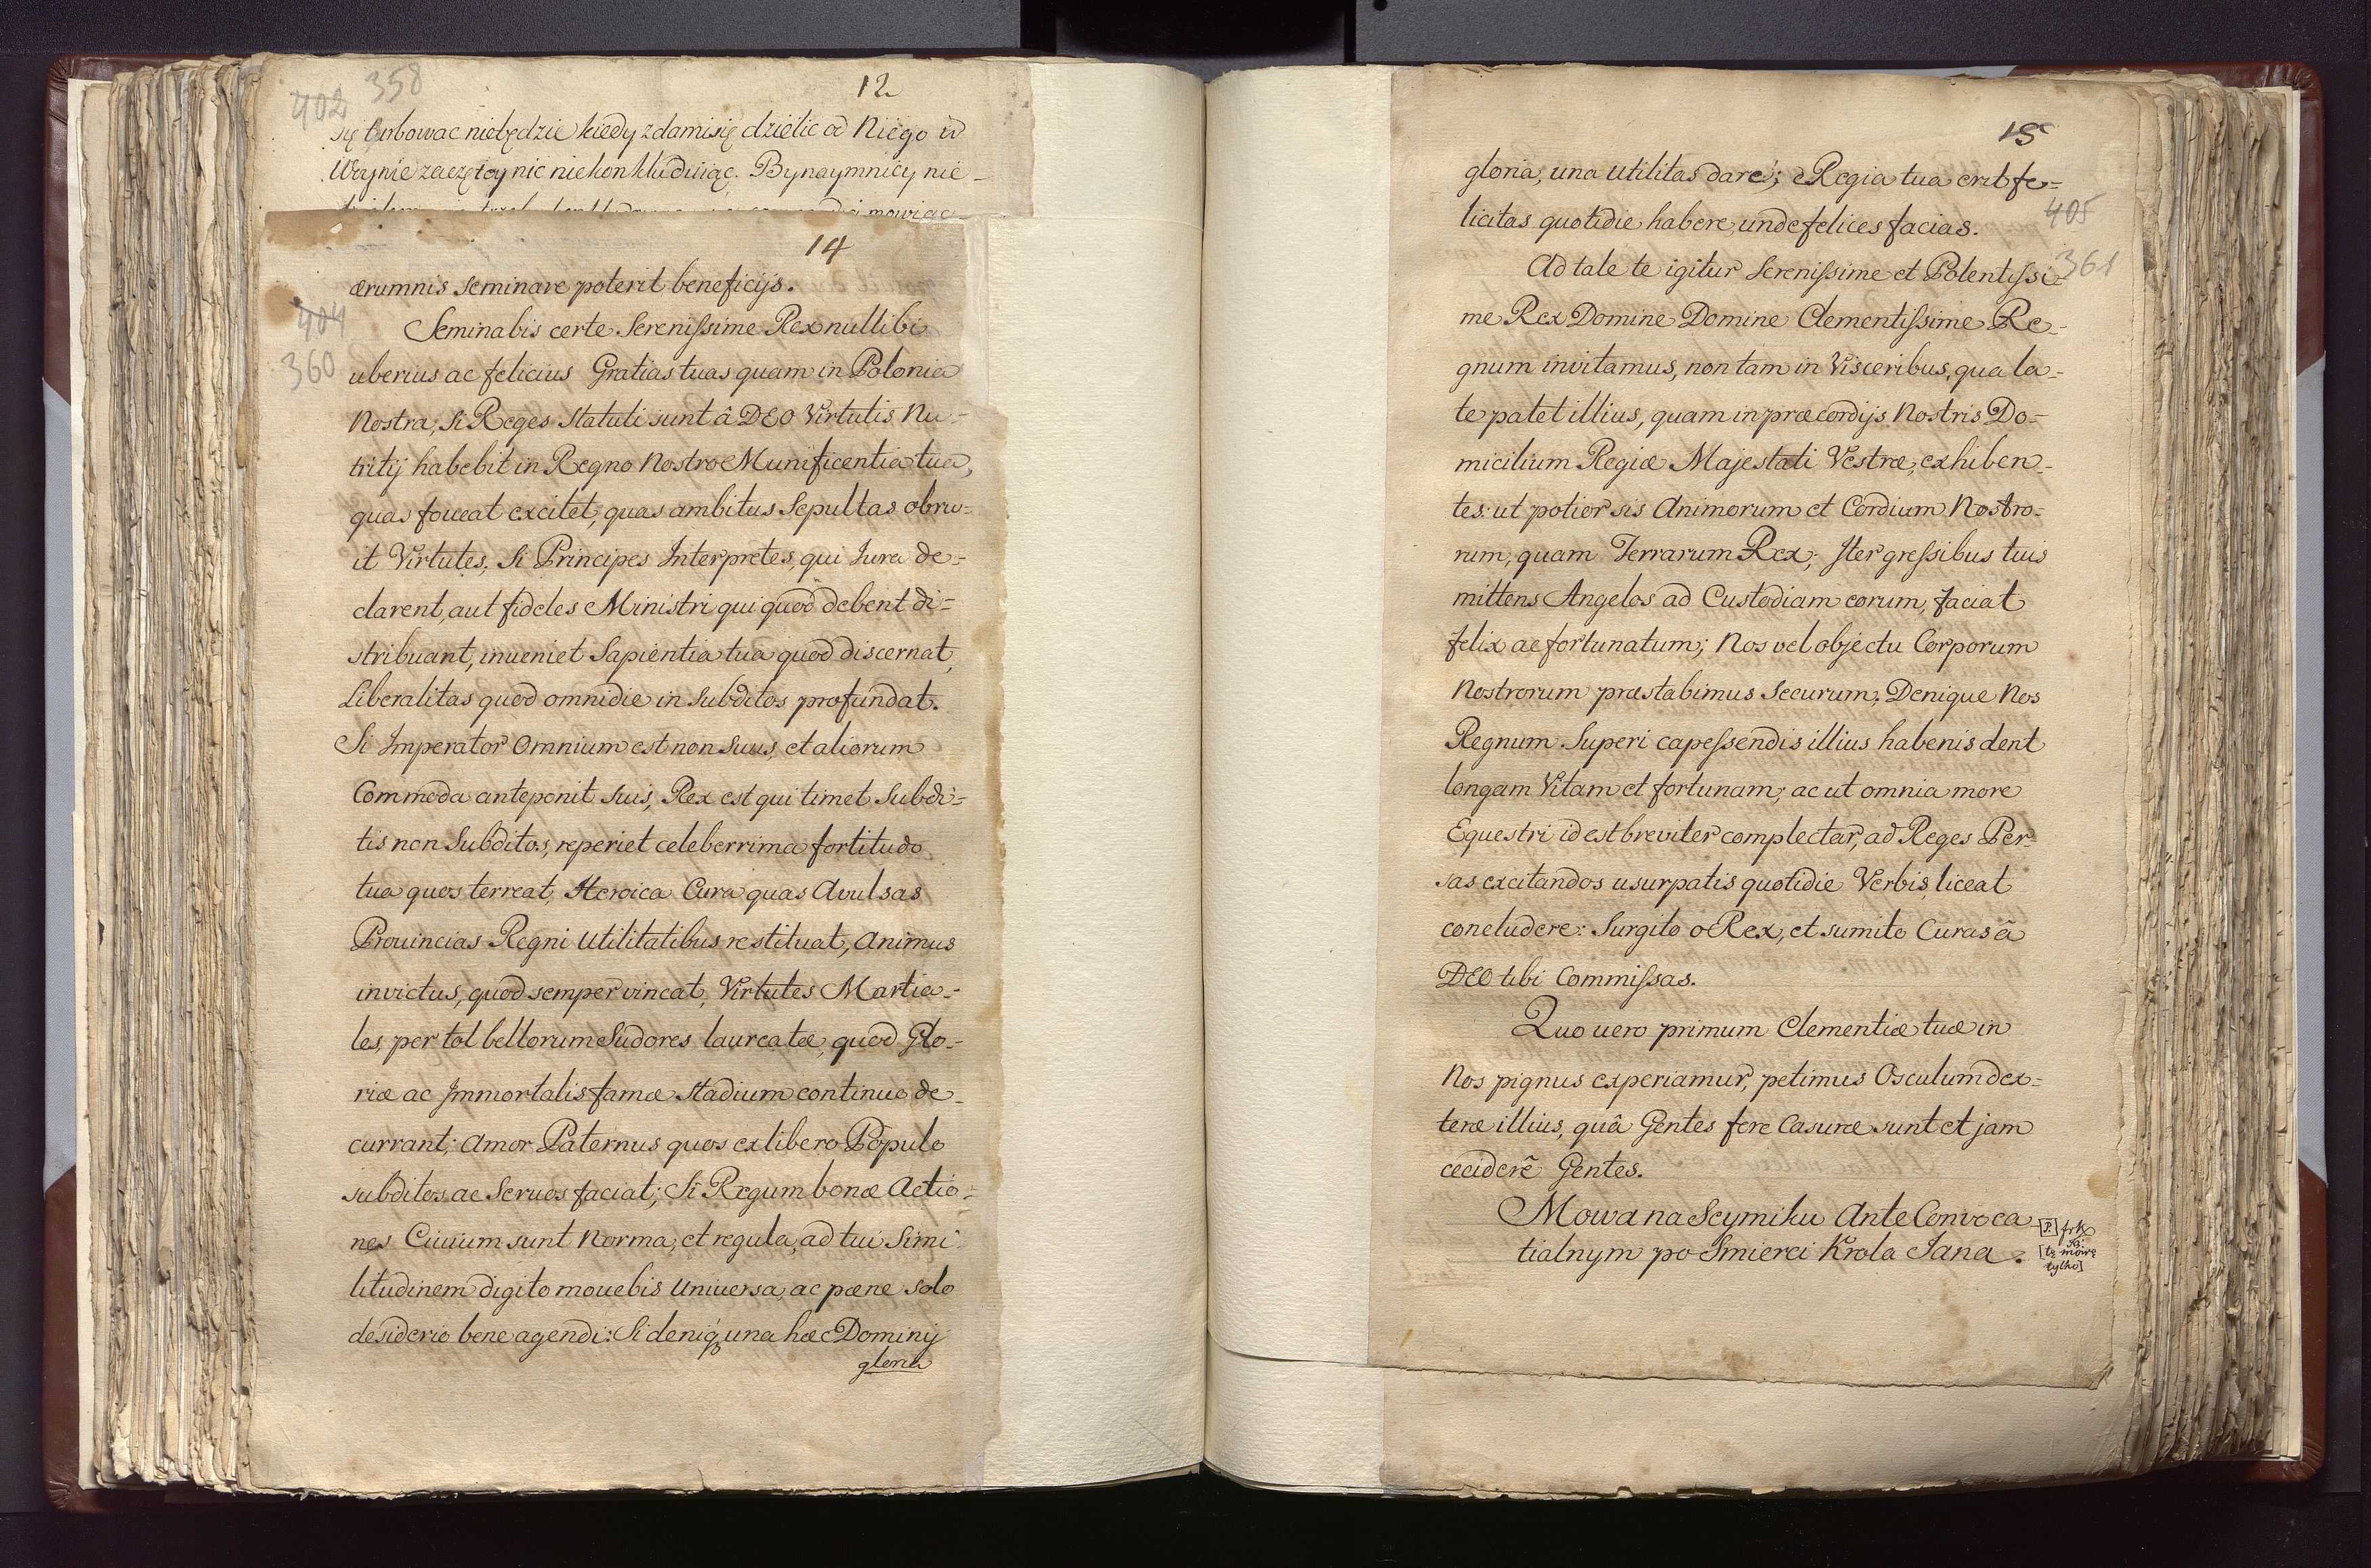 402 358
12
się turbowac niebędzie kiedy zdamisię dzielic od Niego w
Woynie zaczętey nic niekonkluduiąc. Bynaymnicy nie-
mowiąc
14
ærumnis seminare poterit beneficijs.
404
Seminabis certe Serenissime Rex nullibi
360
uberius ac felicius Gratias tuas quam in Polonia
Nostra, si Reges Statuti sunt â DEO Virtutis Nu-
tritij habebit in Regno Nostro Munificentia tua,
quas foueat excitet, quas ambitus Sepultas obru=
it Virtutes, Si Principes Interpretes, qui Iura de=
clarent, aut fideles Ministri qui quod debent di=
stribuant, inueniet Sapientia tua quod discernat,
Liberalitas quod omnidie in Subditos profundat.
Si Imperator Omnium est non Suus, et aliorum
Commoda anteponit suis, Rex est qui timet Subdi=
tis non Subditos, reperiet celeberrima fortitudo
tua quos terreat, Heroica Cura quas Auulsas
Prouincias Regni Utilitatibus restituat, Animus
invictus, quod semper vincat, Virtutes Martia-
les, per tot bellorum Sudores laureatæ, quod Glo-
riæ ac Immortalis famæ Stadium continuo de-
currant; Amor Paternus quos ex libero Populo
subditos ac Seruos faciat; Si Regum bonæ Actio=
nes Ciuium sunt Norma, et regula, ad tui Simi
litudinem digito mouebis Uniuersa, ac pæne solo
desiderio bene agendi: Si deniq, una hæc Dominij
gloria
15
gloria, una utilitas dare; Regia tua erit fe=
405
licitas quotidie habere, unde felices facias.
361
Ad tale te igitur Serenissime et Potentissi
me Rex Domine Domine Clementissime Re-
gnum invitamus, non tam in Visceribus, qua la-
te patet illius, quam in præcordijs Nostris Do=
micilium Regiæ Majestati Vestræ, exhiben-
tes: ut potior sis Animorum et Cordium Nostro=
rum, quam Terrarum Rex; Iter gressibus tuis
mittens Angelos ad Custodiam eorum, faciat
felix ac fortunatum; Nos vel objectu Corporum
Nostrorum præstabimus Securum; Denique Nos
Regnum Superi capessendis illius habenis dent
longam Vitam et fortunam; ac ut omnia more
Equestri id est breviter complectar, ad Reges Per=
sas excitandos usurpatis quotidie Verbis, liceat
concludere: Surgito o Rex, et sumito Curas â
DEO tibi Commissas.
Quo uero primum Clementiæ tuæ in
Nos pignus experiamur, petimus Osculum dex=
teræ illius, quâ Gentes fere Casuræ sunt et jam
cecidere Gentes.
Mowa na Seymiku AnteConvoca
tialnym po Smierci Krola Jana.
[tę mowę
tylko]